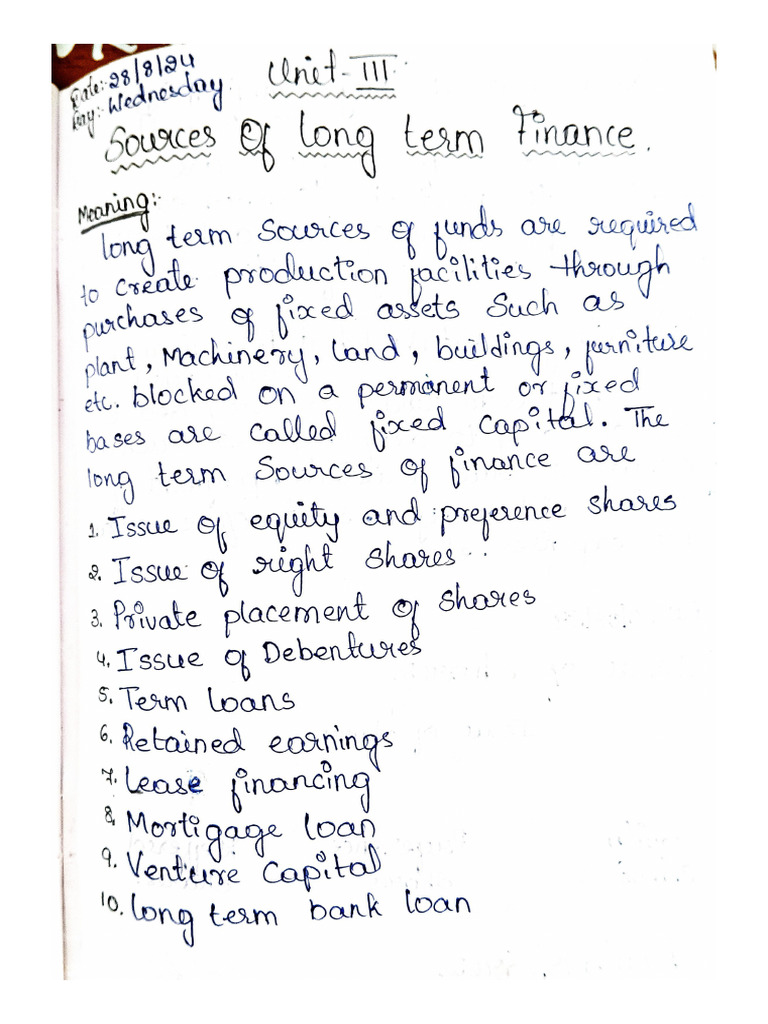 Date:- 28/8/24
Day:- Wednesday
Unit-III
Sources Of long term Finance.
Meaning:-
long term Sources of funds are required
to create production facilities through
purchases of fixed assets Such as
plant, Machinery, land, buildings, furniture
etc. blocked on a permanent or fixed
bases are called fixed capital. The
long term Sources of finance are
1. Issue of equity and preference shares
2. Issue of right shares
3. Private placement of shares
4. Issue of Debentures
5. Term loans
6. Retained earnings
7. Lease financing
8. Mortigage loan
9. Venture capital
10. long term bank loan